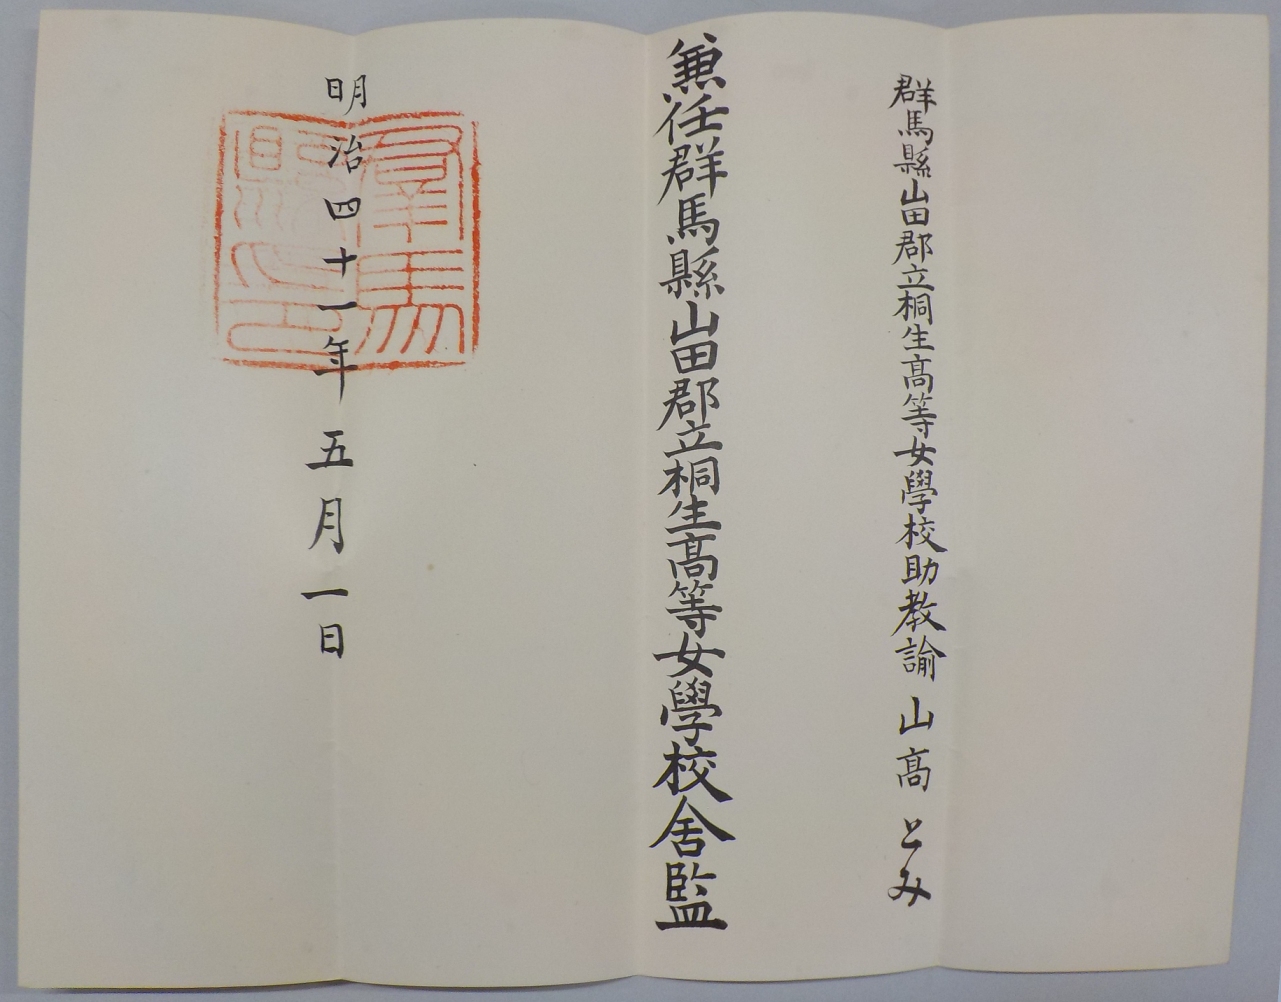 群馬縣山田郡立桐生髙等女學校助教諭 山髙 とみ
兼任群馬縣山田郡立桐生髙等女學校舍監
明治四十一年五月一日
群馬
縣印